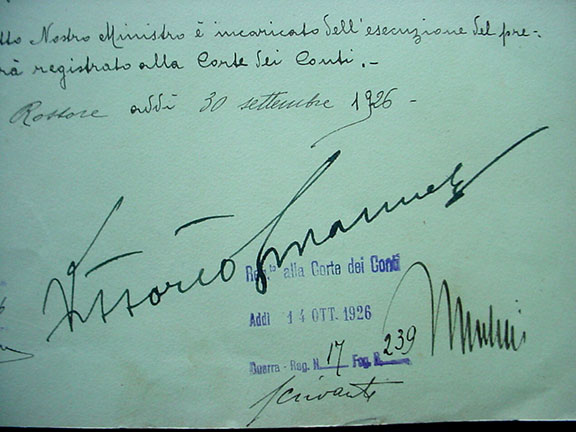 tto Nostro Ministro è incaricato dell'esecuzione del pre-
rà registrato alla Corte dei Conti.-
Rossore addì 30 settembre 1926 -
Vittorio Emanuele
Reg.ta alla Corte dei Conti
Addì 14 OTT. 1926
Guerra - Reg. N. 17 Fog. N. 239